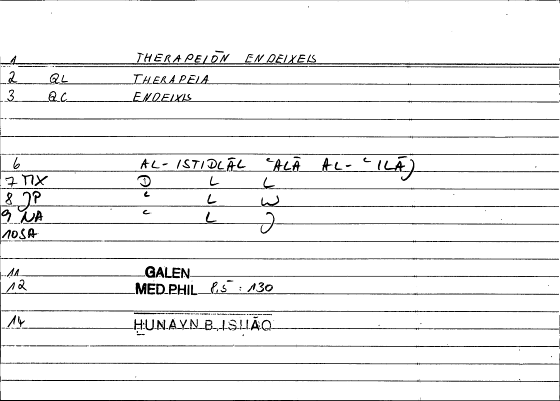 1 THERAPEIŌN ENDEIXEIS
2 QL THERAPEIA
3 QC ENDEIXIS
6 AL-ISTIDLĀL ʿALĀ AL-ʿILĀJ
7 MX D L L
8 JP ʿ L W
9 NA ʿ L J
10 SA
11 GALEN
12 MED.PHIL 8,5 : 130
14 ḤUNAYN B. ISḤĀQ